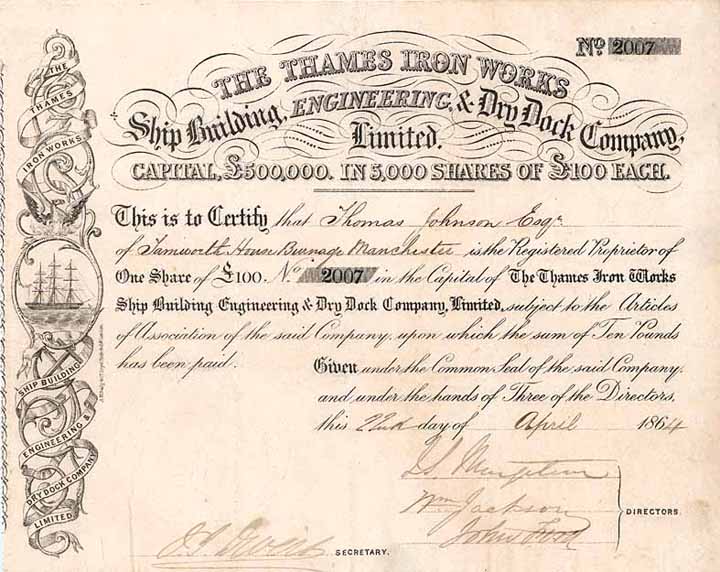 No. 2007
THE THAMES IRON WORKS
Ship Building, ENGINEERING, & Dry Dock Company,
Limited.
CAPITAL, £500,000. IN 5,000 SHARES OF £100 EACH.
This is to Certify that Thomas Johnson Esqr
of Tamworth House Burnage Manchester is the Registered Proprietor of
One Share of £100. No. 2007 in the Capital of The Thames Iron Works
Ship Building Engineering & Dry Dock Company, Limited, subject to the Articles
of Association of the said Company, upon which the sum of Ten Pounds
has been paid.
Given under the Common Seal of the said Company
and under the hands of Three of the Directors,
this 22nd day of April 1864
Wm Jackson
John Ford
DIRECTORS.
SECRETARY.
THE
THAMES
IRON WORKS
SHIP BUILDING
ENGINEERING &
DRY DOCK COMPANY
LIMITED